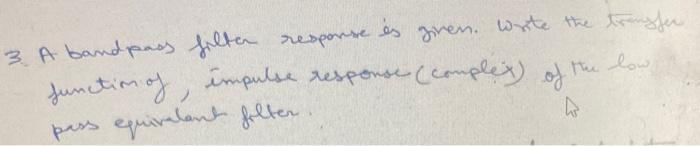 3 A bandpass filter response is given. Write the transfer
function of, impulse response (complex) of the low
pass equivalent filter.